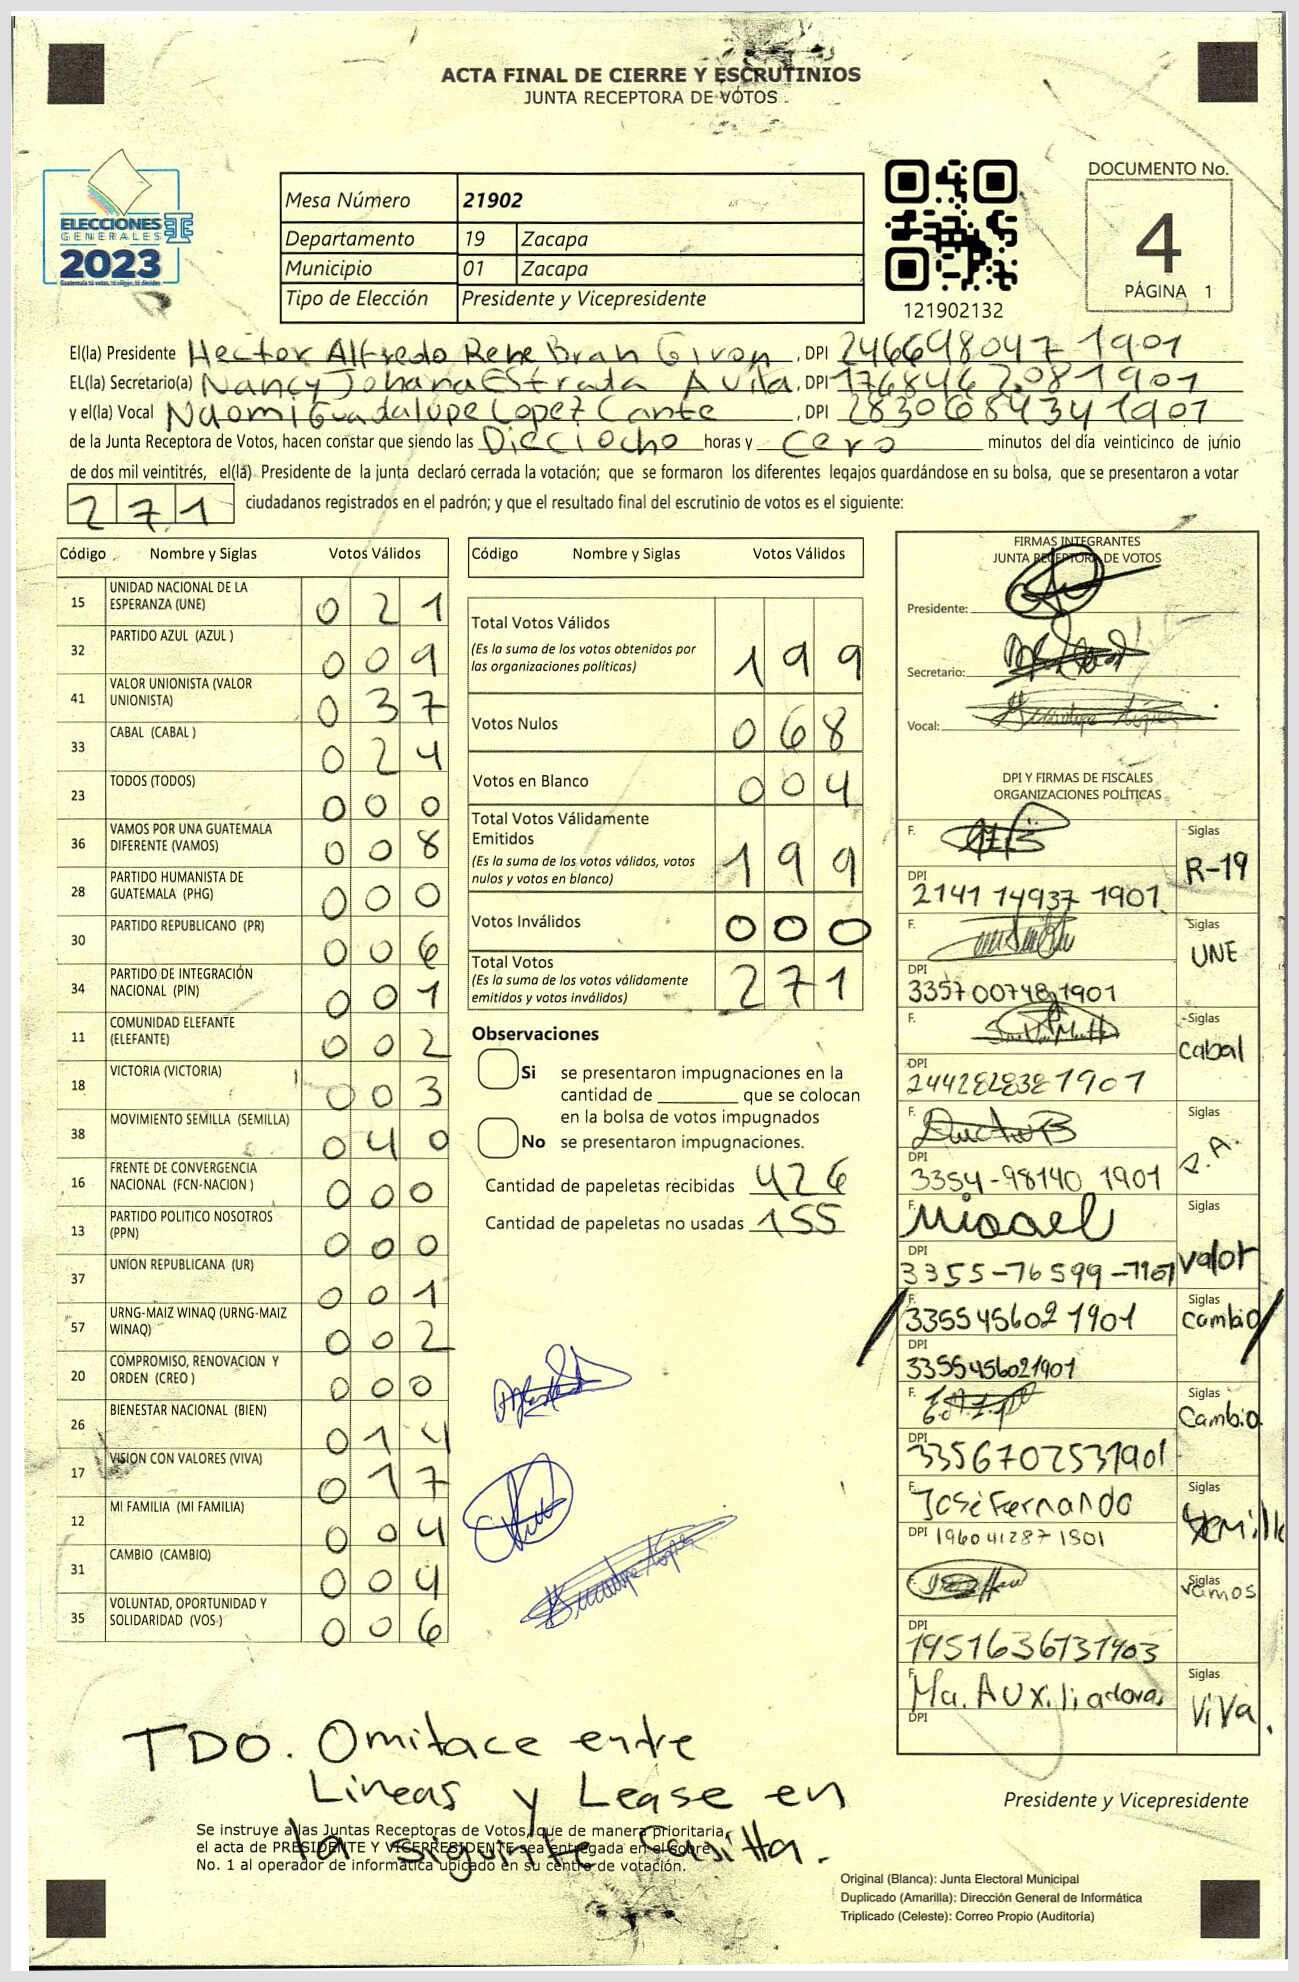 ACTA FINAL DE CIERRE Y ESCRUTINIOS
JUNTA RECEPTORA DE VOTOS
ELECCIONES
GENERALES
2023
Mesa Número 21902
Departamento 19 Zacapa
Municipio 01 Zacapa
Tipo de Elección Presidente y Vicepresidente
121902132
DOCUMENTO No.
4
PÁGINA 1
El(la) Presidente Hector Alfredo Rene Bran Giron, DPI 246698047 1901
EL(la) Secretario(a) Nancy Johana EStrada Avila, DPI 1768462081901
y el(la) Vocal Naomi Guadalupe Lopez Cante, DPI 2830684341901
de la Junta Receptora de Votos, hacen constar que siendo las Dieciocho horas y cero minutos del día veinticinco de junio
de dos mil veintitrés, el(la) Presidente de la junta declaró cerrada la votación; que se formaron los diferentes legajos guardándose en su bolsa, que se presentaron a votar
271 ciudadanos registrados en el padrón; y que el resultado final del escrutinio de votos es el siguiente:
Código Nombre y Siglas Votos Válidos
15 UNIDAD NACIONAL DE LA ESPERANZA (UNE) 0 2 1
32 PARTIDO AZUL (AZUL ) 0 0 9
41 VALOR UNIONISTA (VALOR UNIONISTA) 0 3 7
33 CABAL (CABAL ) 0 2 4
23 TODOS (TODOS) 0 0 0
36 VAMOS POR UNA GUATEMALA DIFERENTE (VAMOS) 0 0 8
28 PARTIDO HUMANISTA DE GUATEMALA (PHG) 0 0 0
30 PARTIDO REPUBLICANO (PR) 0 0 6
34 PARTIDO DE INTEGRACIÓN NACIONAL (PIN) 0 0 1
11 COMUNIDAD ELEFANTE (ELEFANTE) 0 0 2
18 VICTORIA (VICTORIA) 0 0 3
38 MOVIMIENTO SEMILLA (SEMILLA) 0 4 0
16 FRENTE DE CONVERGENCIA NACIONAL (FCN-NACION ) 0 0 0
13 PARTIDO POLITICO NOSOTROS (PPN) 0 0 0
37 UNION REPUBLICANA (UR) 0 0 1
57 URNG-MAIZ WINAQ (URNG-MAIZ WINAQ) 0 0 2
20 COMPROMISO, RENOVACION Y ORDEN (CREO ) 0 0 0
26 BIENESTAR NACIONAL (BIEN) 0 1 4
17 VISION CON VALORES (VIVA) 0 1 7
12 MI FAMILIA (MI FAMILIA) 0 0 4
31 CAMBIO (CAMBIO) 0 0 4
35 VOLUNTAD, OPORTUNIDAD Y SOLIDARIDAD (VOS ) 0 0 6
Código Nombre y Siglas Votos Válidos
Total Votos Válidos
(Es la suma de los votos obtenidos por las organizaciones políticas) 1 9 9
Votos Nulos 0 6 8
Votos en Blanco 0 0 4
Total Votos Válidamente Emitidos
(Es la suma de los votos válidos, votos nulos y votos en blanco) 1 9 9
Votos Inválidos 0 0 0
Total Votos
(Es la suma de los votos válidamente emitidos y votos inválidos) 2 7 1
Observaciones
Si se presentaron impugnaciones en la
cantidad de ________ que se colocan
en la bolsa de votos impugnados
No se presentaron impugnaciones.
Cantidad de papeletas recibidas 426
Cantidad de papeletas no usadas 155
FIRMAS INTEGRANTES
JUNTA RECEPTORA DE VOTOS
Presidente:
Secretario:
Vocal:
DPI Y FIRMAS DE FISCALES
ORGANIZACIONES POLÍTICAS
F. Siglas R-19
DPI 2141 14937 1901
F. Siglas UNE
DPI 335700748 1901
F. Siglas cabal
DPI
F. Siglas
DPI 3354-98140 1901
F. Misael Siglas valor
DPI 3355-76599-1901
F. 335545602 1901 Siglas Cambio
DPI 3355456021901
F. Siglas Cambio
DPI 3356702531901
F. José Fernando Siglas Semilla
DPI 1960412871901
F. Siglas vamos
DPI
F. Ma. Auxiliadora Siglas ViVa.
DPI
TDO. Omitace entre
Lineas y Lease en
la siguinte Casitta.
Se instruye a las Juntas Receptoras de Votos, que de manera prioritaria,
el acta de PRESIDENTE Y VICEPRESIDENTE sea entregada en el sobre
No. 1 al operador de informática ubicado en su centro de votación.
Presidente y Vicepresidente
Original (Blanca): Junta Electoral Municipal
Duplicado (Amarilla): Dirección General de Informática
Triplicado (Celeste): Correo Propio (Auditoría)